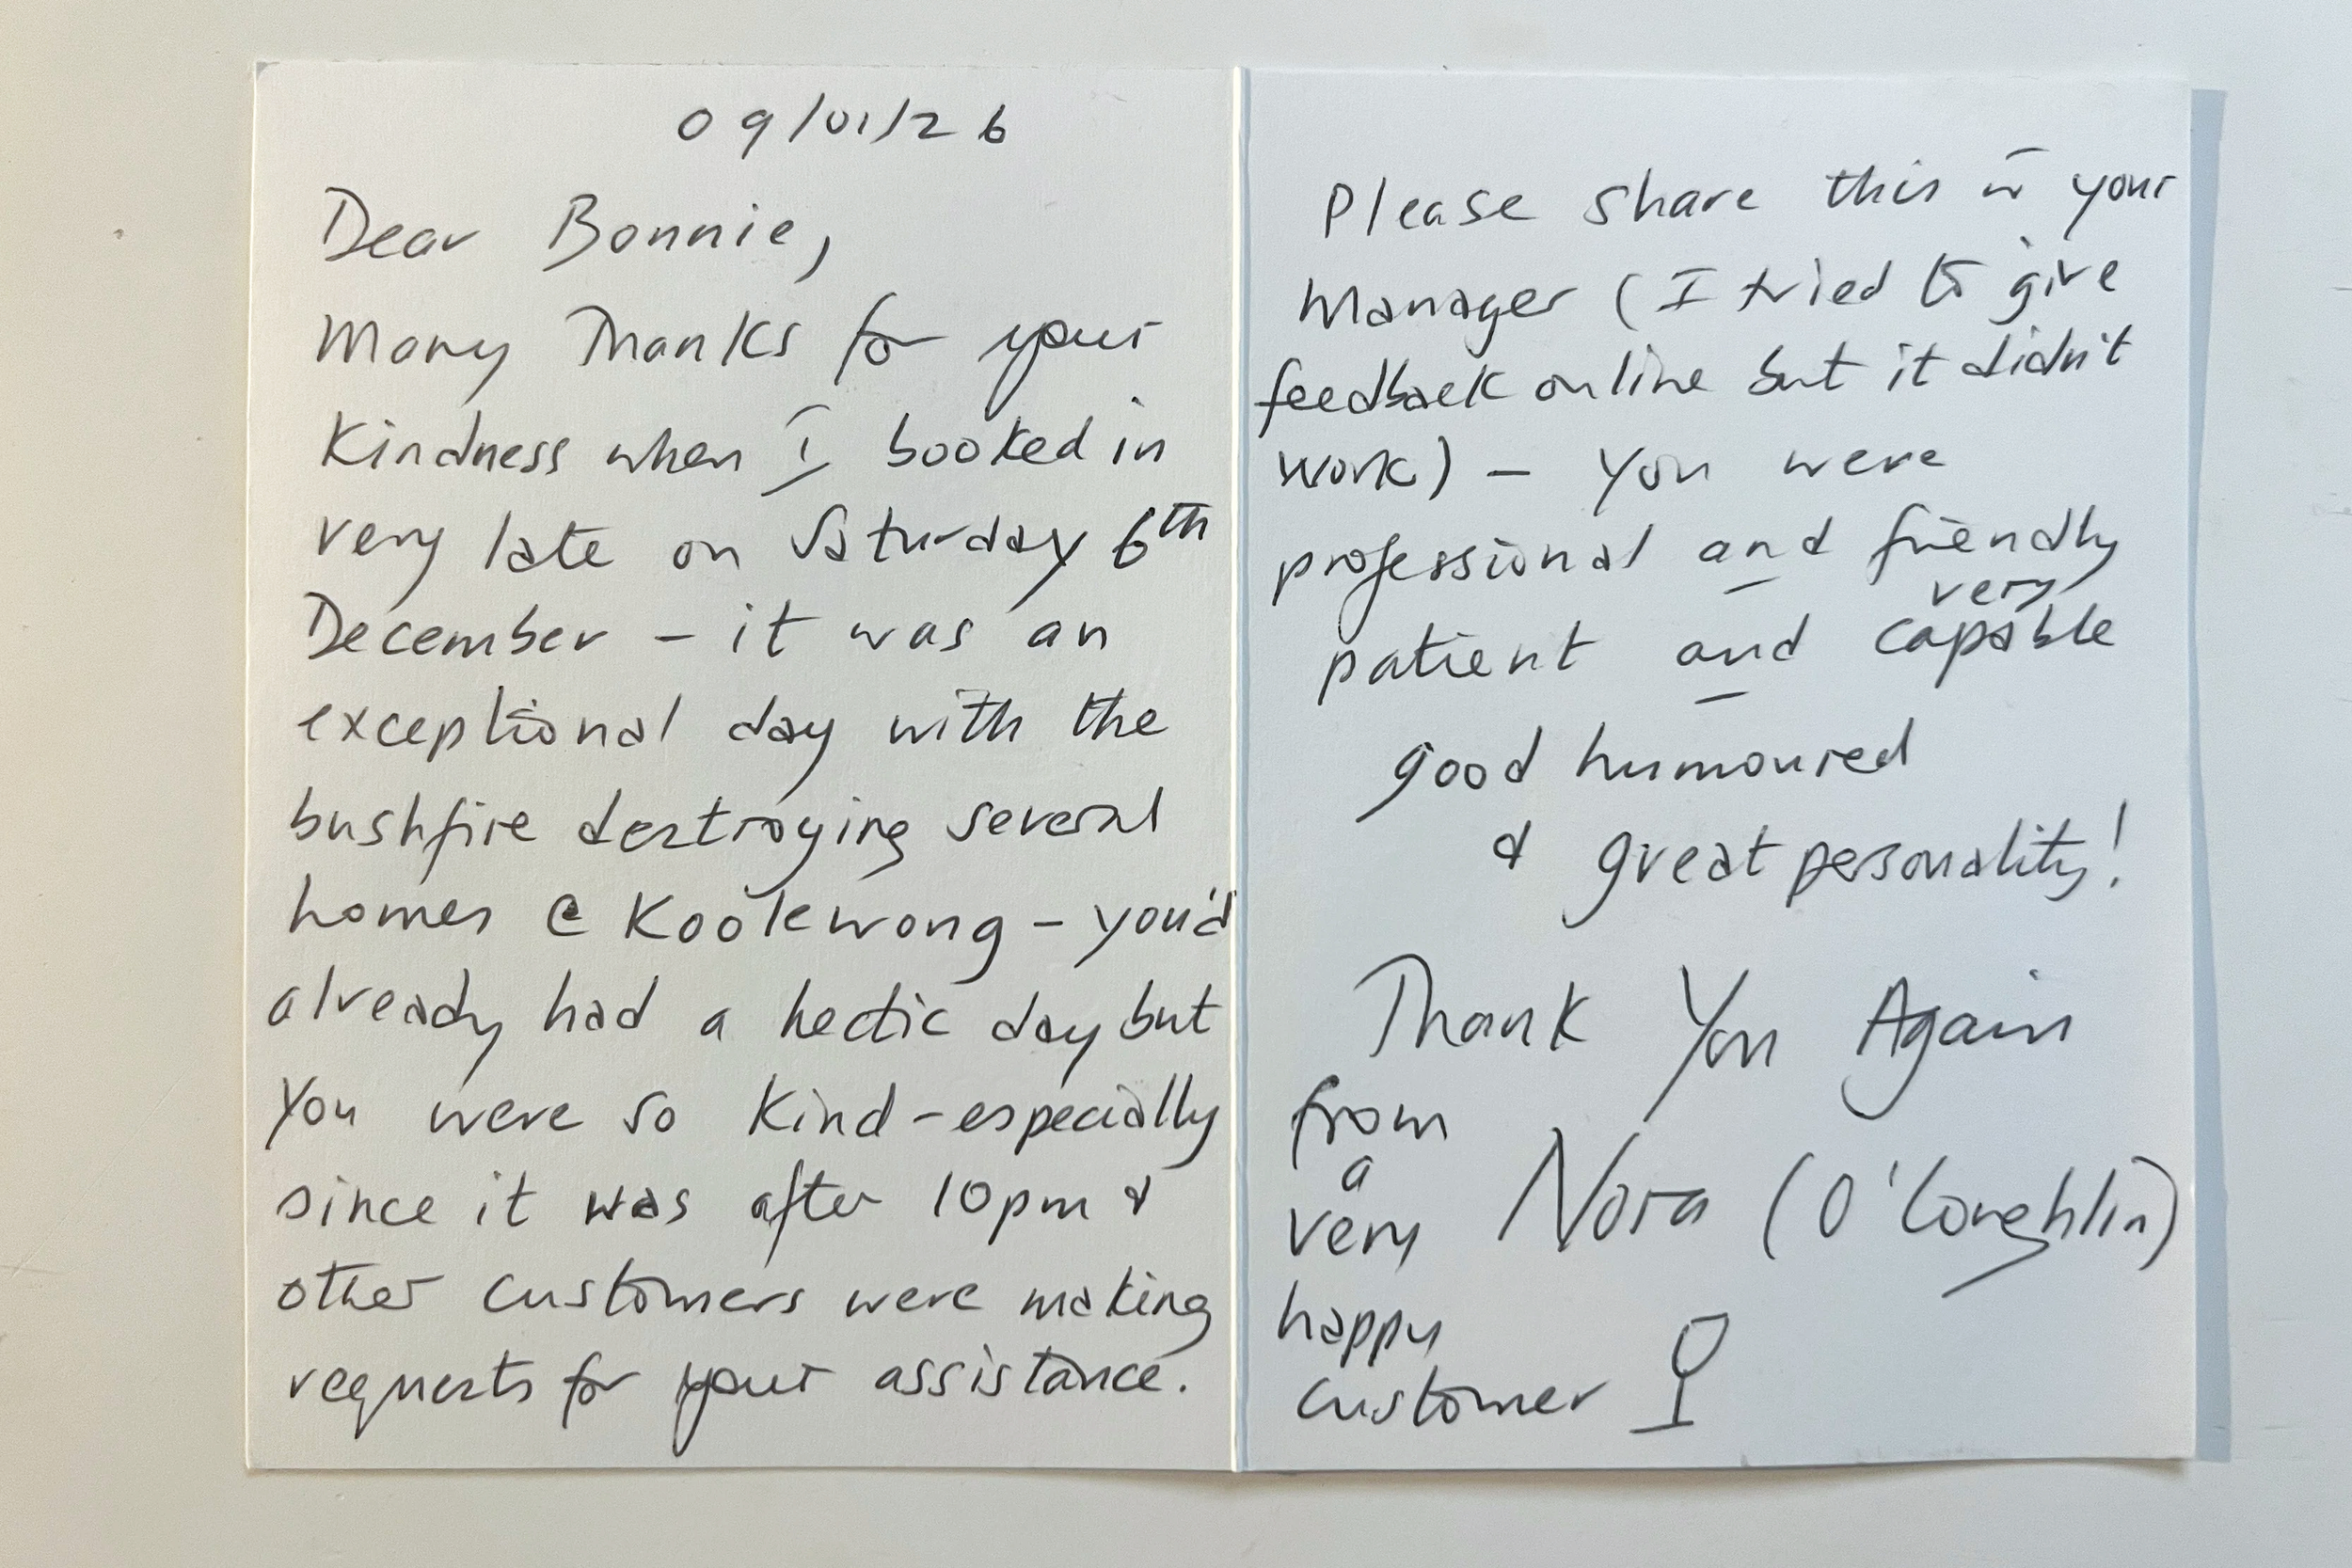 09/01/26
Dear Bonnie,
Many Thanks for your
Kindness when I booked in
very late on Saturday 6th
December - it was an
exceptional day with the
bushfire destroying several
homes @ Koolewong - you'd
already had a hectic day but
you were so kind - especially
since it was after 10pm &
other customers were making
requests for your assistance.
Please share this w̄ your
Manager (I tried to give
feedback online but it didn't
work) - you were
professional and friendly
very
patient and capable
good humoured
& great personality!
Thank You Again
from
a
very Nora (O'Loughlin)
happy
customer